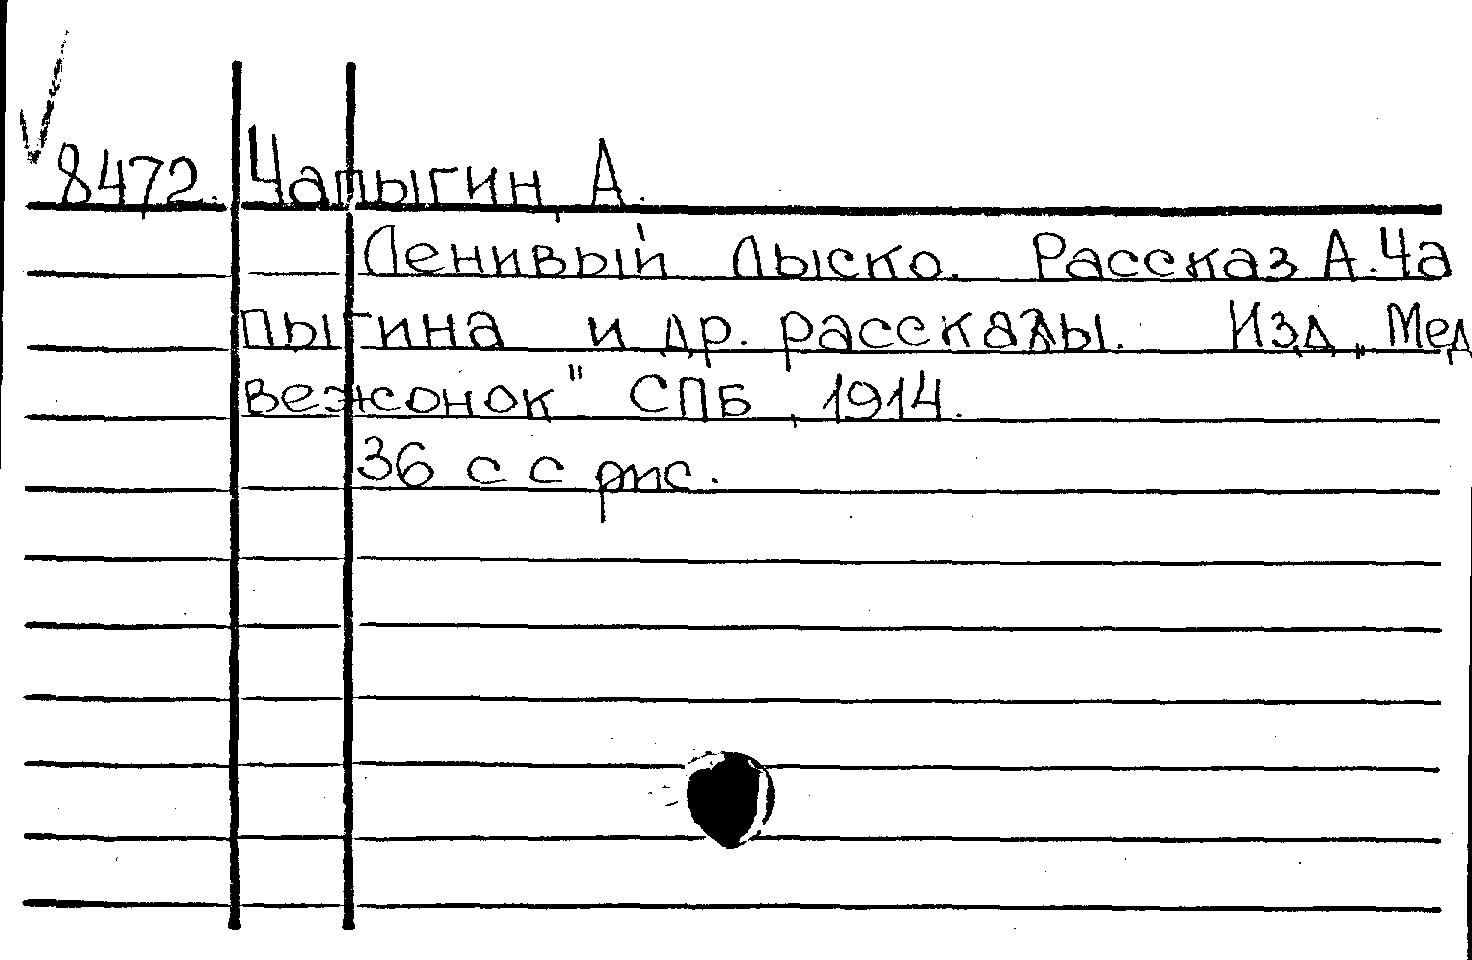 8472. Чапыгин, А.
Ленивый Лыско. Рассказ А. Ча
пыгина и др. рассказы. Изд. „Мед
вежонок" СПБ, 1914.
36 с с рис.